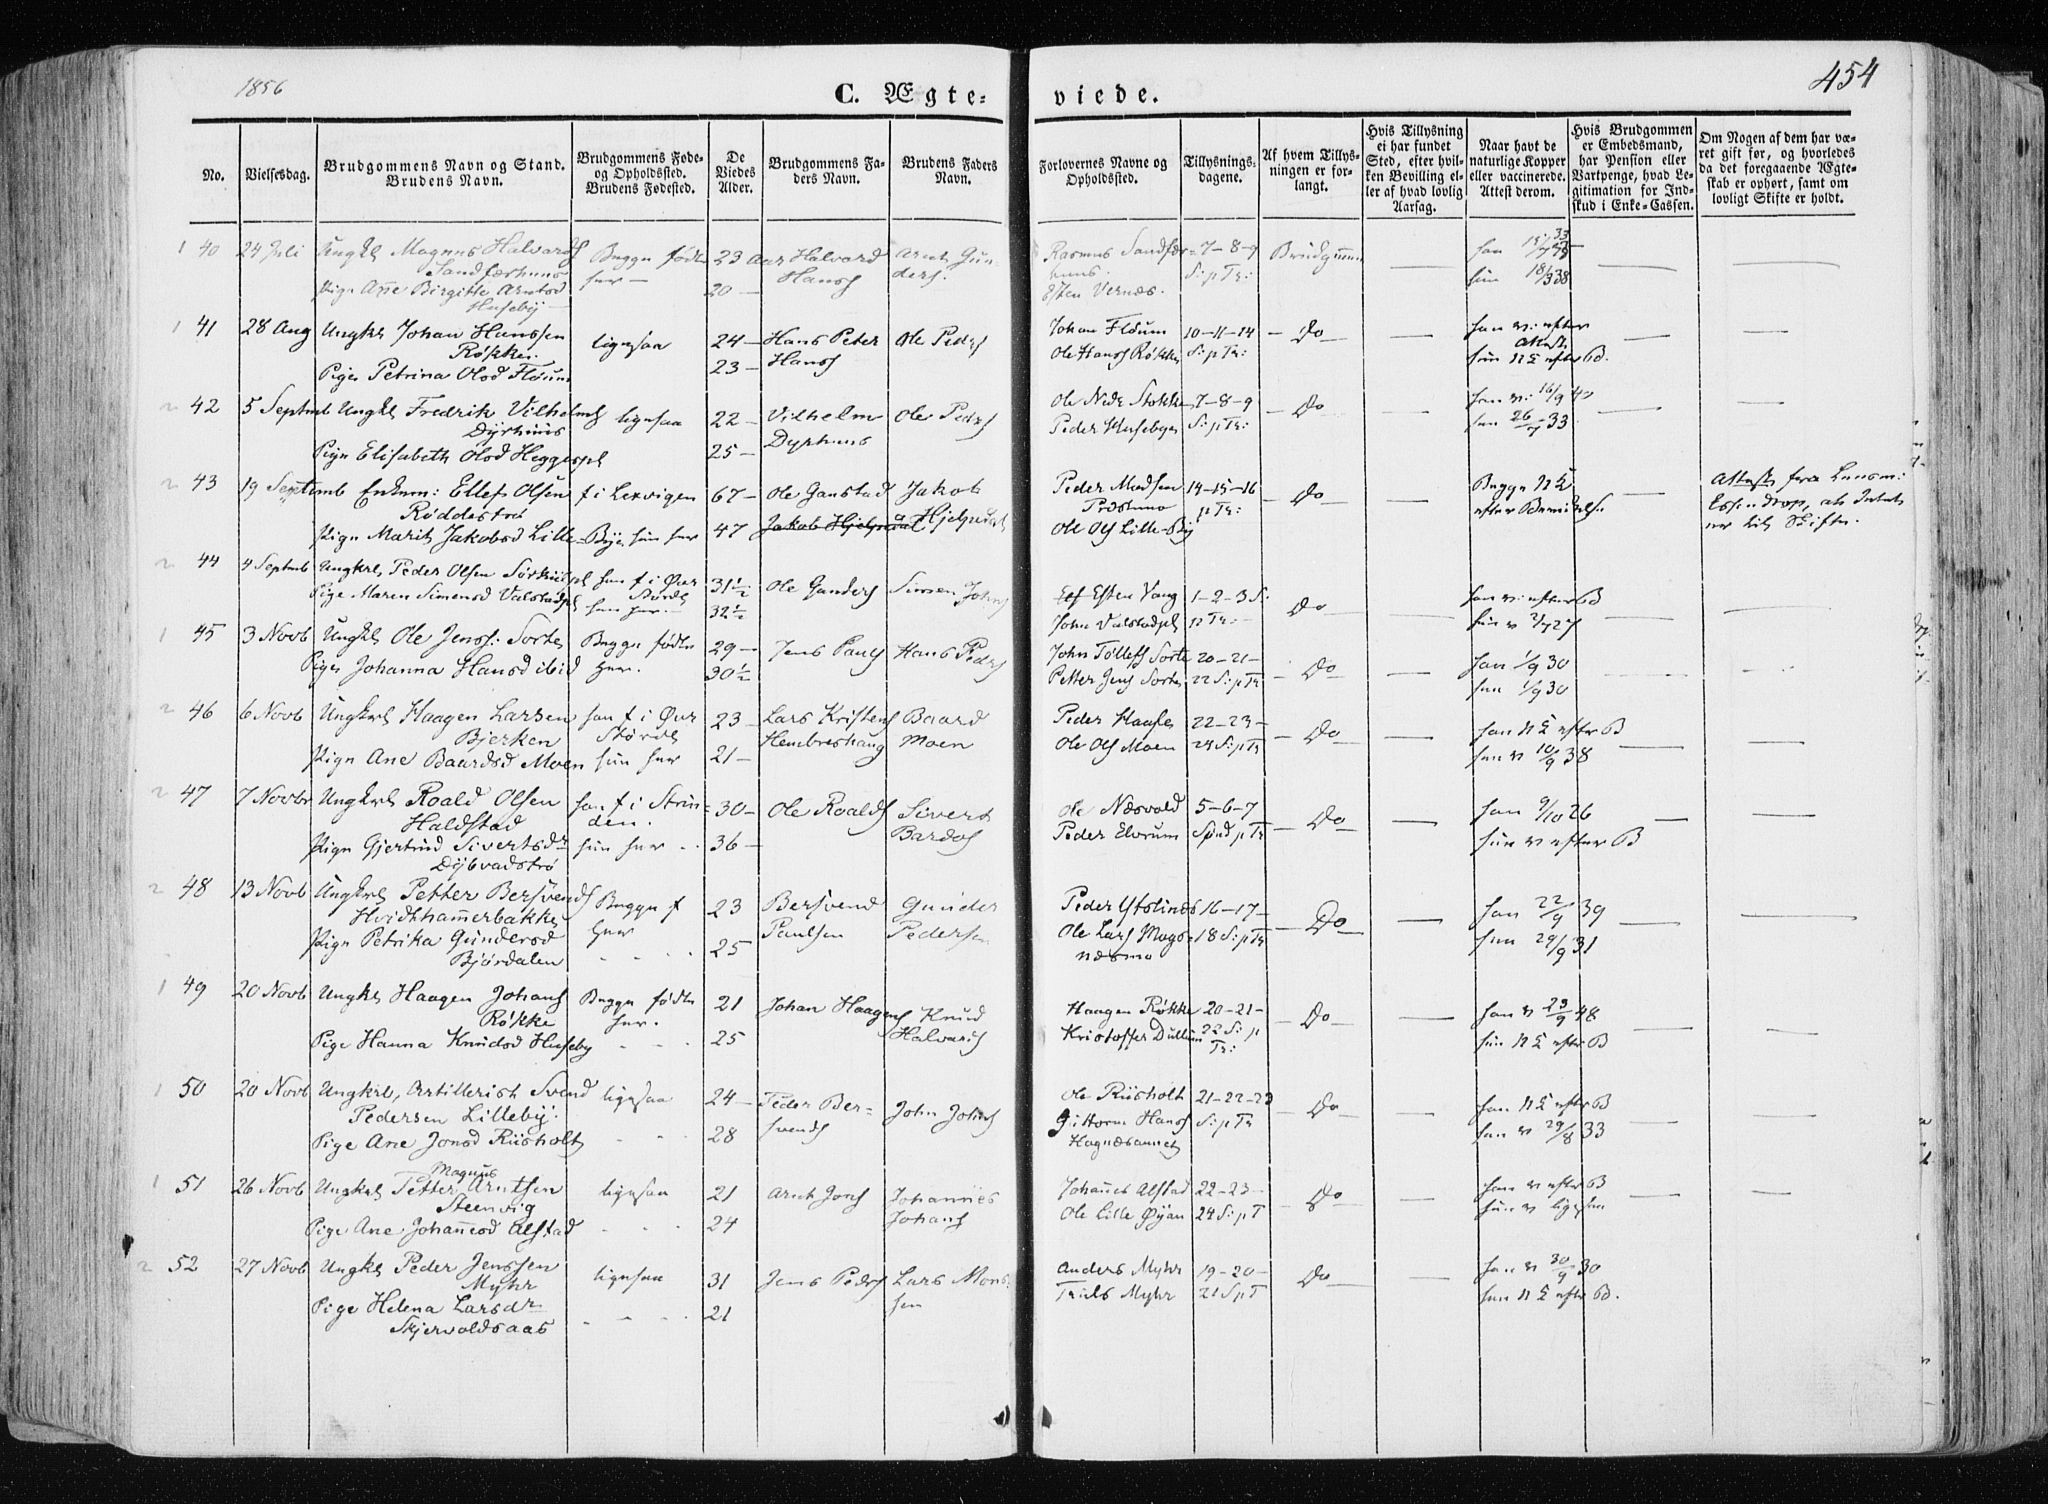 1856
C. Ægte- viede.
454
No.
Vielsesdag.
Brudgommens Navn og Stand.
Brudens Navn.
Brudgommens Føde-
og Opholdssted.
Brudens Fødested.
De
Viedes
Alder.
Brudgommens Fa-
ders Navn.
Brudens Faders
Navn.
Forlovernes Navne og
Opholdssted.
Tillysnings-
dagene.
Af hvem Tillys-
ningen er for-
langt.
Hvis Tillysning
ei har fundet
Sted, efter hvil-
ken Bevilling el-
ler af hvad lovlig
Aarsag.
Naar havt de
naturlige Kopper
eller vaccinerede.
Attest derom.
Hvis Brudgommen
er Embedsmand,
har Pension eller
Vartpenge, hvad Le-
gitimation for Ind-
skud i Enke-Cassen.
Om Nogen af dem har væ-
ret gift før, og hvorledes
da det foregaaende Ægte-
skab er ophørt, samt om
lovligt Skifte er holdt.
1 40 24 Juli Ungkl Magnus Halvards
Sandfærhuus
Pige Ane Birgitte Arntsd
Huseby
Begge fødte
her
23 Aar
20
Halvard
Hans
Arnt Gun-
ders
Rasmus Sandfær-
huus.
Esten Vernæs.
7-8-9
S: p Tr:
Brudgommen
han
hun 18/9 38
1 41 28 Aug Ungkl Johan Hanssen
Røkke.
Pige Petrina Olsd Floum
ligesaa
24
23
Hans Peter
Hans
Ole Peders
Johan Floum
Ole Hans Røkke
10-11-14
S: p Tr:
Do
han v: efter
Attest
hun N E efter B.
2 42 5 Septmb Ungkl Fredrik Vilhelms
Dyrhuus
Pige Elisabeth Olsd Heggespl
ligesaa
22
25
Vilhelm
Dyrhuus
Ole Peders
Ole Stokke
Peder Husebye
7-8-9
S: p Tr:
Do
han v: 16/9 40
hun 33
2 43 19 Septemb Enkem: Ellef Olsen
Røddestrø
Pige Marit Jakobsd Lille-Bye
f i Lexvigen
hun her
67
47
Ole Ganstad
Jakob Hjelpudal
Jakob
Hjelpudal
Peder Madsen
Ole Ols Lille-By
14-15-16
p Tr:
Do
Begge N E
efter
Attest fra
Essendrop, at Intet
er til Skifte.
2 44 4 Septmb Ungkrl Peder Olsen
Pige Maren Simensd Valstadpl
han f i Øvr
Størdl
hun her.
31½
32½
Ole Gunders
Simen Johns
Esten Vang
John Valstadpl
1-2-3 S:
p Tr:
Do
han v: efter B
hun v 2/7 27
1 45 3 Novb Ungkl Ole Jenss: Sorte
Pige Johanna Hansd ibid
Begge fødte
her.
29
30½
Jens Pauls
Hans Peders
John Tollefs Sorte
Petter Jens Sorte
20-21-
22 S: p Tr
Do
han 1/9 30
hun 1/9 30
2 46 6 Novb Ungkrl Haagen Larsen
Bjerken
Pige Ane Baardsd Moen
han f i Øvr
Størdl
hun her
23
21
Lars Kristens
Hembreshaug
Baard
Moen
Peder Haase
Ole Ols Moen
22-23-
24 S: p Tr
Do
han N E efter B
hun v 10/9 38
2 47 7 Novbr Ungkrl Roald Olsen
Haldstad
Pige Gjertrud Sivertsdr
Dybvadstrø
han f i Strin-
den.
hun her
30
36
Ole Roalds
Sivert
Bardos
Ole Næsvold
Peder Elvrum
5-6-7
Sønd p Tr
Do
han 9/10 26
hun v efter B
2 48 13 Novb Ungkrl Petter Bersvends
Hvidthamerbakke
Pige Petrika Gundersd
Bjørdalen
Begge f
her
23
25
Bersvend
Paulsen
Gunder
Pedersen
Peder Ystlines
Ole Lars Mogs-
næsmo
16-17-
18 S: p Tr
Do
han 22/9 39
hun 29/9 31
1 49 20 Novb Ungkl Haagen Johans
Røkke
Pige Hanna Knudsd Huseby
Begge fødte
her.
21
25
Johan Haagens
Knud
Halvards
Haagen Røkke
Kristoffer Dullum
20-21-
22 S: p
Tr:
Do
han v 23/9 48
hun N E efter B
1 50 20 Novb Ungkrl, Artillerist Svend
Pedersen Lilleby
Pige Ane Jonsd Ruusholt
ligesaa
24
28
Peder Ber-
svends
John Johns
Ole Ruusholt
Gittorm Hans
21-22-23
S: p Tr
Do
han N E efter B
hun v 29/8 33
1 51 26 Novb Ungkl Petter Magnus Arntsen
Steenvig
Pige Ane Johannesd Alstad
ligesaa
21
24
Arnt Jons
Johannes
Johans
Johanes Alstad
Ole Lille Øyan
22-23-
24 S: p T
Do
han v efter B
hun v ligesaa
2 52 27 Novb Ungkl Peder Jenssen
Myhr
Pige Helena Larsdr
Skjervoldsaas
ligesaa
31
21
Jens Peders
Lars Mons-
sen
Anders Myhr
Truls Myhr
19-20-
21 S p T
Do
han v 30/9 30
hun N E efter B.